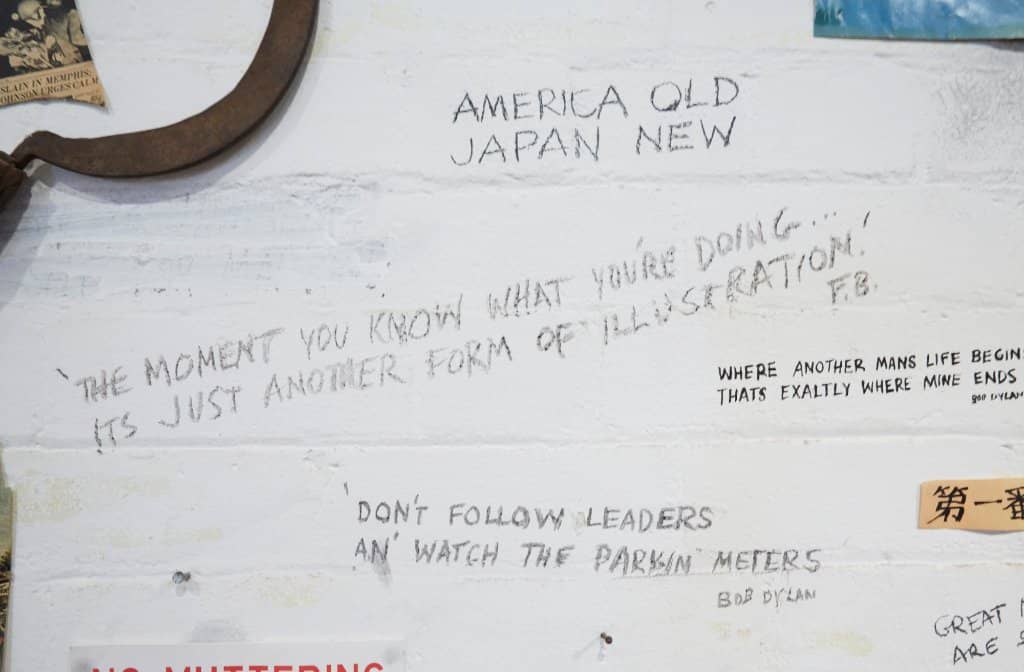 SLAIN IN MEMPHIS;
JOHNSON URGES CALM
AMERICA OLD
JAPAN NEW
'THE MOMENT YOU KNOW WHAT YOU'RE DOING...
ITS JUST ANOTHER FORM OF ILLUSTRATION.'
F.B.
WHERE ANOTHER MANS LIFE BEGINS
THATS EXALTLY WHERE MINE ENDS
BOB DYLAN
第一番
'DON'T FOLLOW LEADERS
AN' WATCH THE PARKIN' METERS
BOB DYLAN
GREAT
ARE
NO MUTTERING